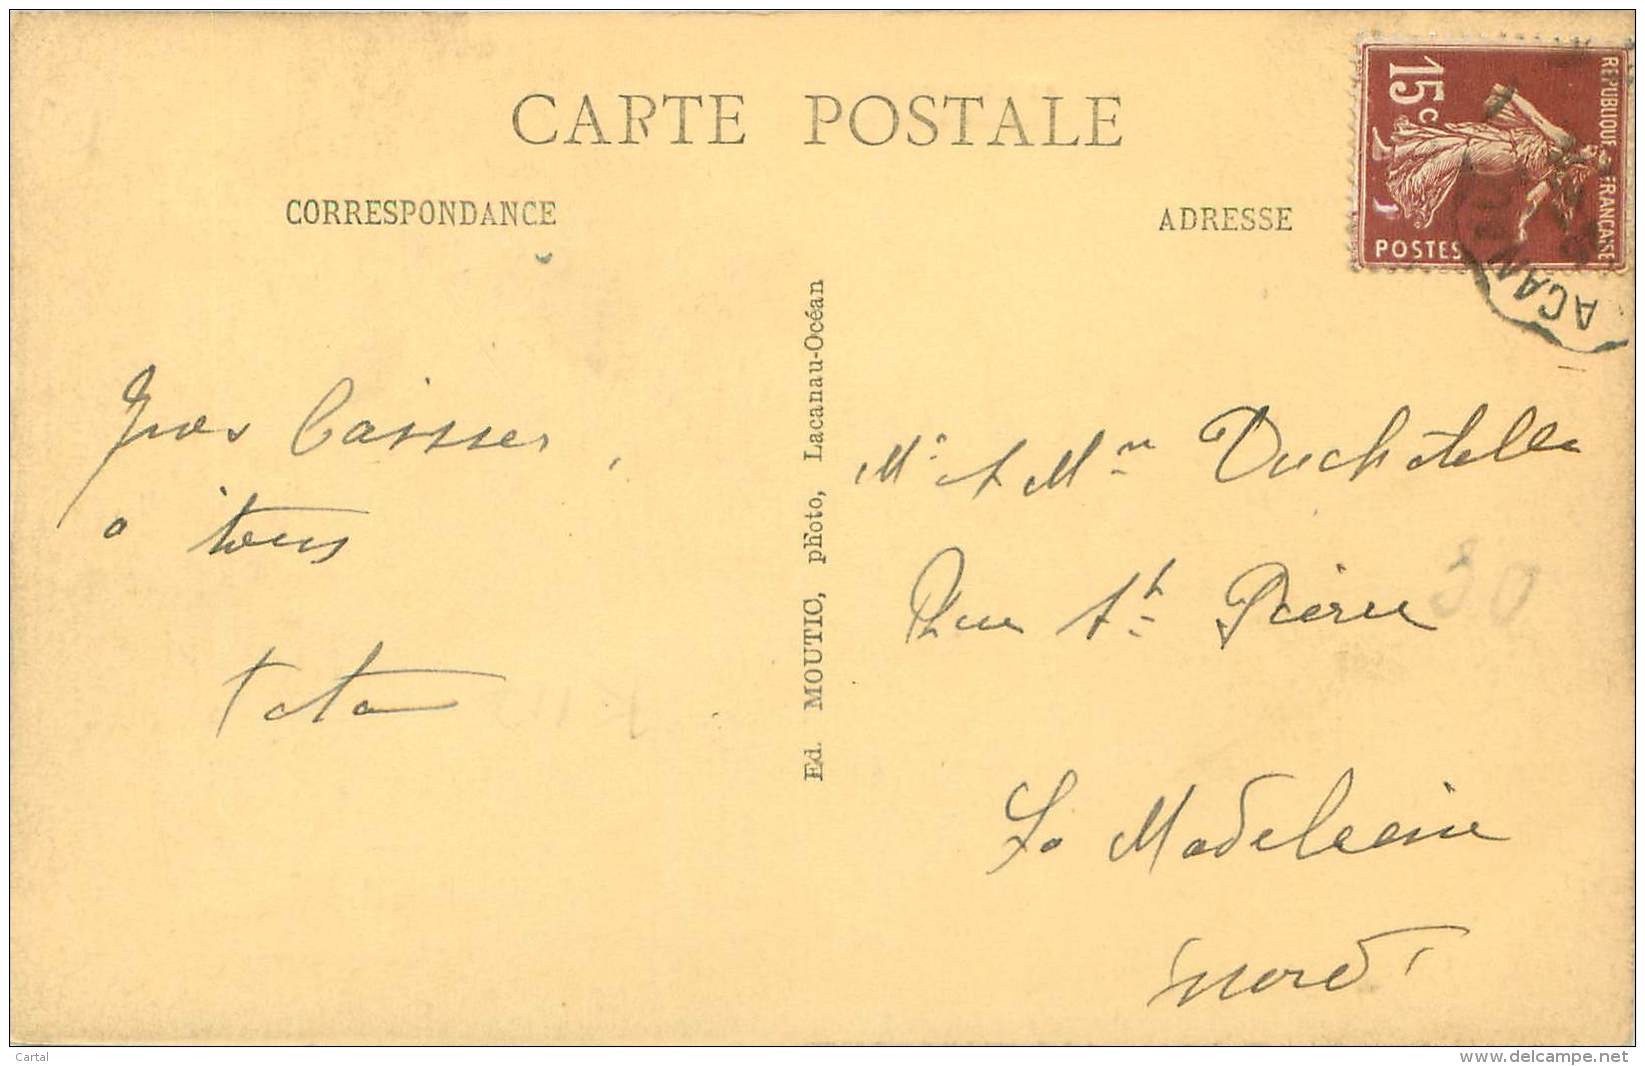 CARTE POSTALE
CORRESPONDANCE
ADRESSE
15c
REPUBLIQUE FRANÇAISE
POSTES
ACAN
Gros baisers,
à tous
Tata
Ed. MOUTIC, photo, Lacanau-Océan
Mr et Mme Duchatelle
Rue St Pierre
30
La Madeleine
Nord
Cartal
www.delcampe.net